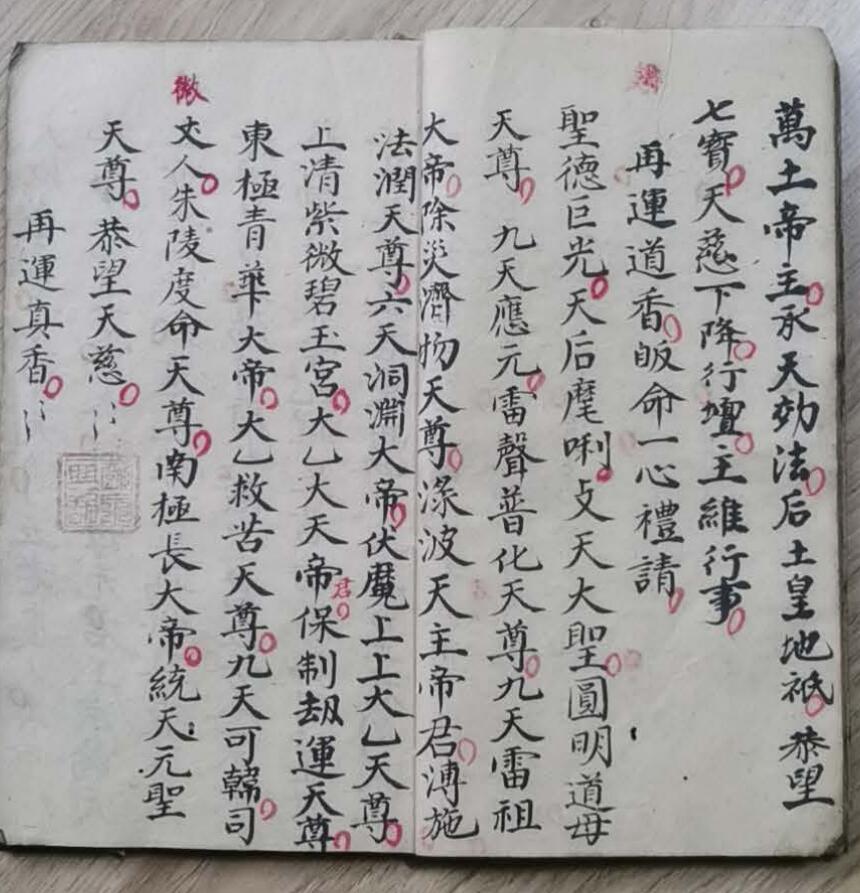 萬土帝主承天効法后土皇地祇恭望
七寶天慈下降行壇主維行事
再運道香皈命一心禮請
聖德巨光天后摩唎攴天大聖圓明道母
天尊九天應元雷聲普化天尊九天雷祖
大帝除災濟物天尊滌波天主帝君溥施
法潤天尊六天洞淵大帝伏魔上上大乙天尊
上清紫微碧玉宮大乙大天帝君保制劫運天尊
東極青華大帝大乙救苦天尊九天可韓司
微
丈人朱陵度命天尊南極長大帝統天元聖
天尊恭望天慈〻
再運真香〻